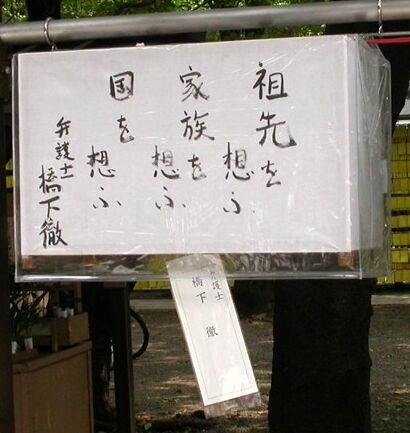 祖先を想ふ
家族を想ふ
国を想ふ
弁護士 橋下徹
弁護士
橋下 徹